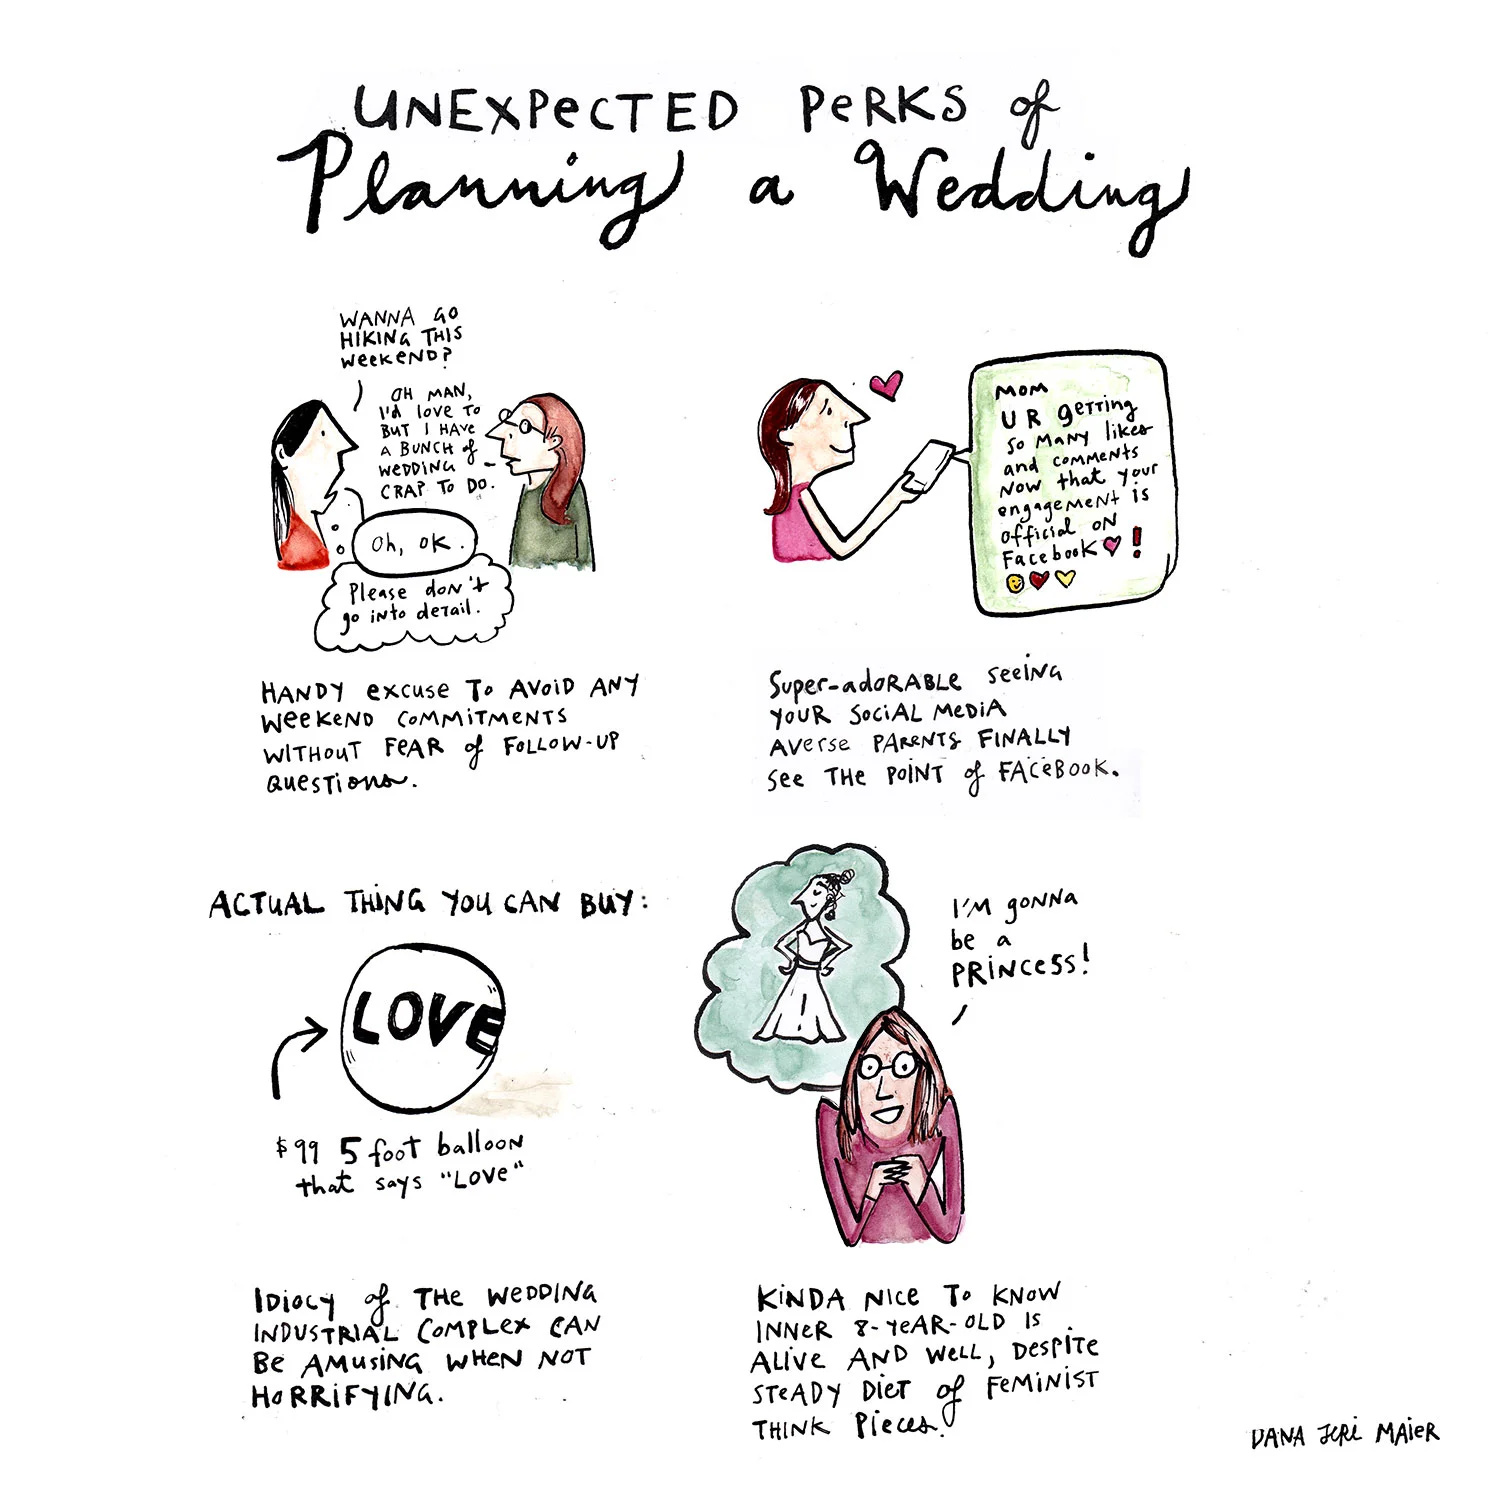 UNEXPECTED PERKS of
Planning a Wedding
WANNA GO
HIKING THIS
WEEKEND?
OH MAN,
I'd LOVE TO
BUT I HAVE
A BUNCH of
WEDDING
CRAP TO DO.
Oh, OK.
Please don't
go into detail.
HANDY excuse TO AVOID ANY
WEEKEND COMMITMENTS
WITHOUT FEAR of FOLLOW-UP
QUESTIONS.
MOM
U R getting
so many likes
and comments
now that your
engagement is
official on
Facebook!
Super-adorable seeing
your social media
averse parents finally
see the point of Facebook.
ACTUAL THING YOU CAN BUY:
LOVE
$99 5 foot balloon
that says "LOVE"
IDIOCY of THE WEDDING
INDUSTRIAL COMPLEX CAN
BE AMUSING WHEN NOT
HORRIFYING.
I'M gonna
be a
PRINCESS!
KINDA NICE TO KNOW
INNER 8-YEAR-OLD IS
ALIVE AND WELL, DESPITE
STEADY DIET of FEMINIST
THINK PIECES.
DANA JERI MAIER